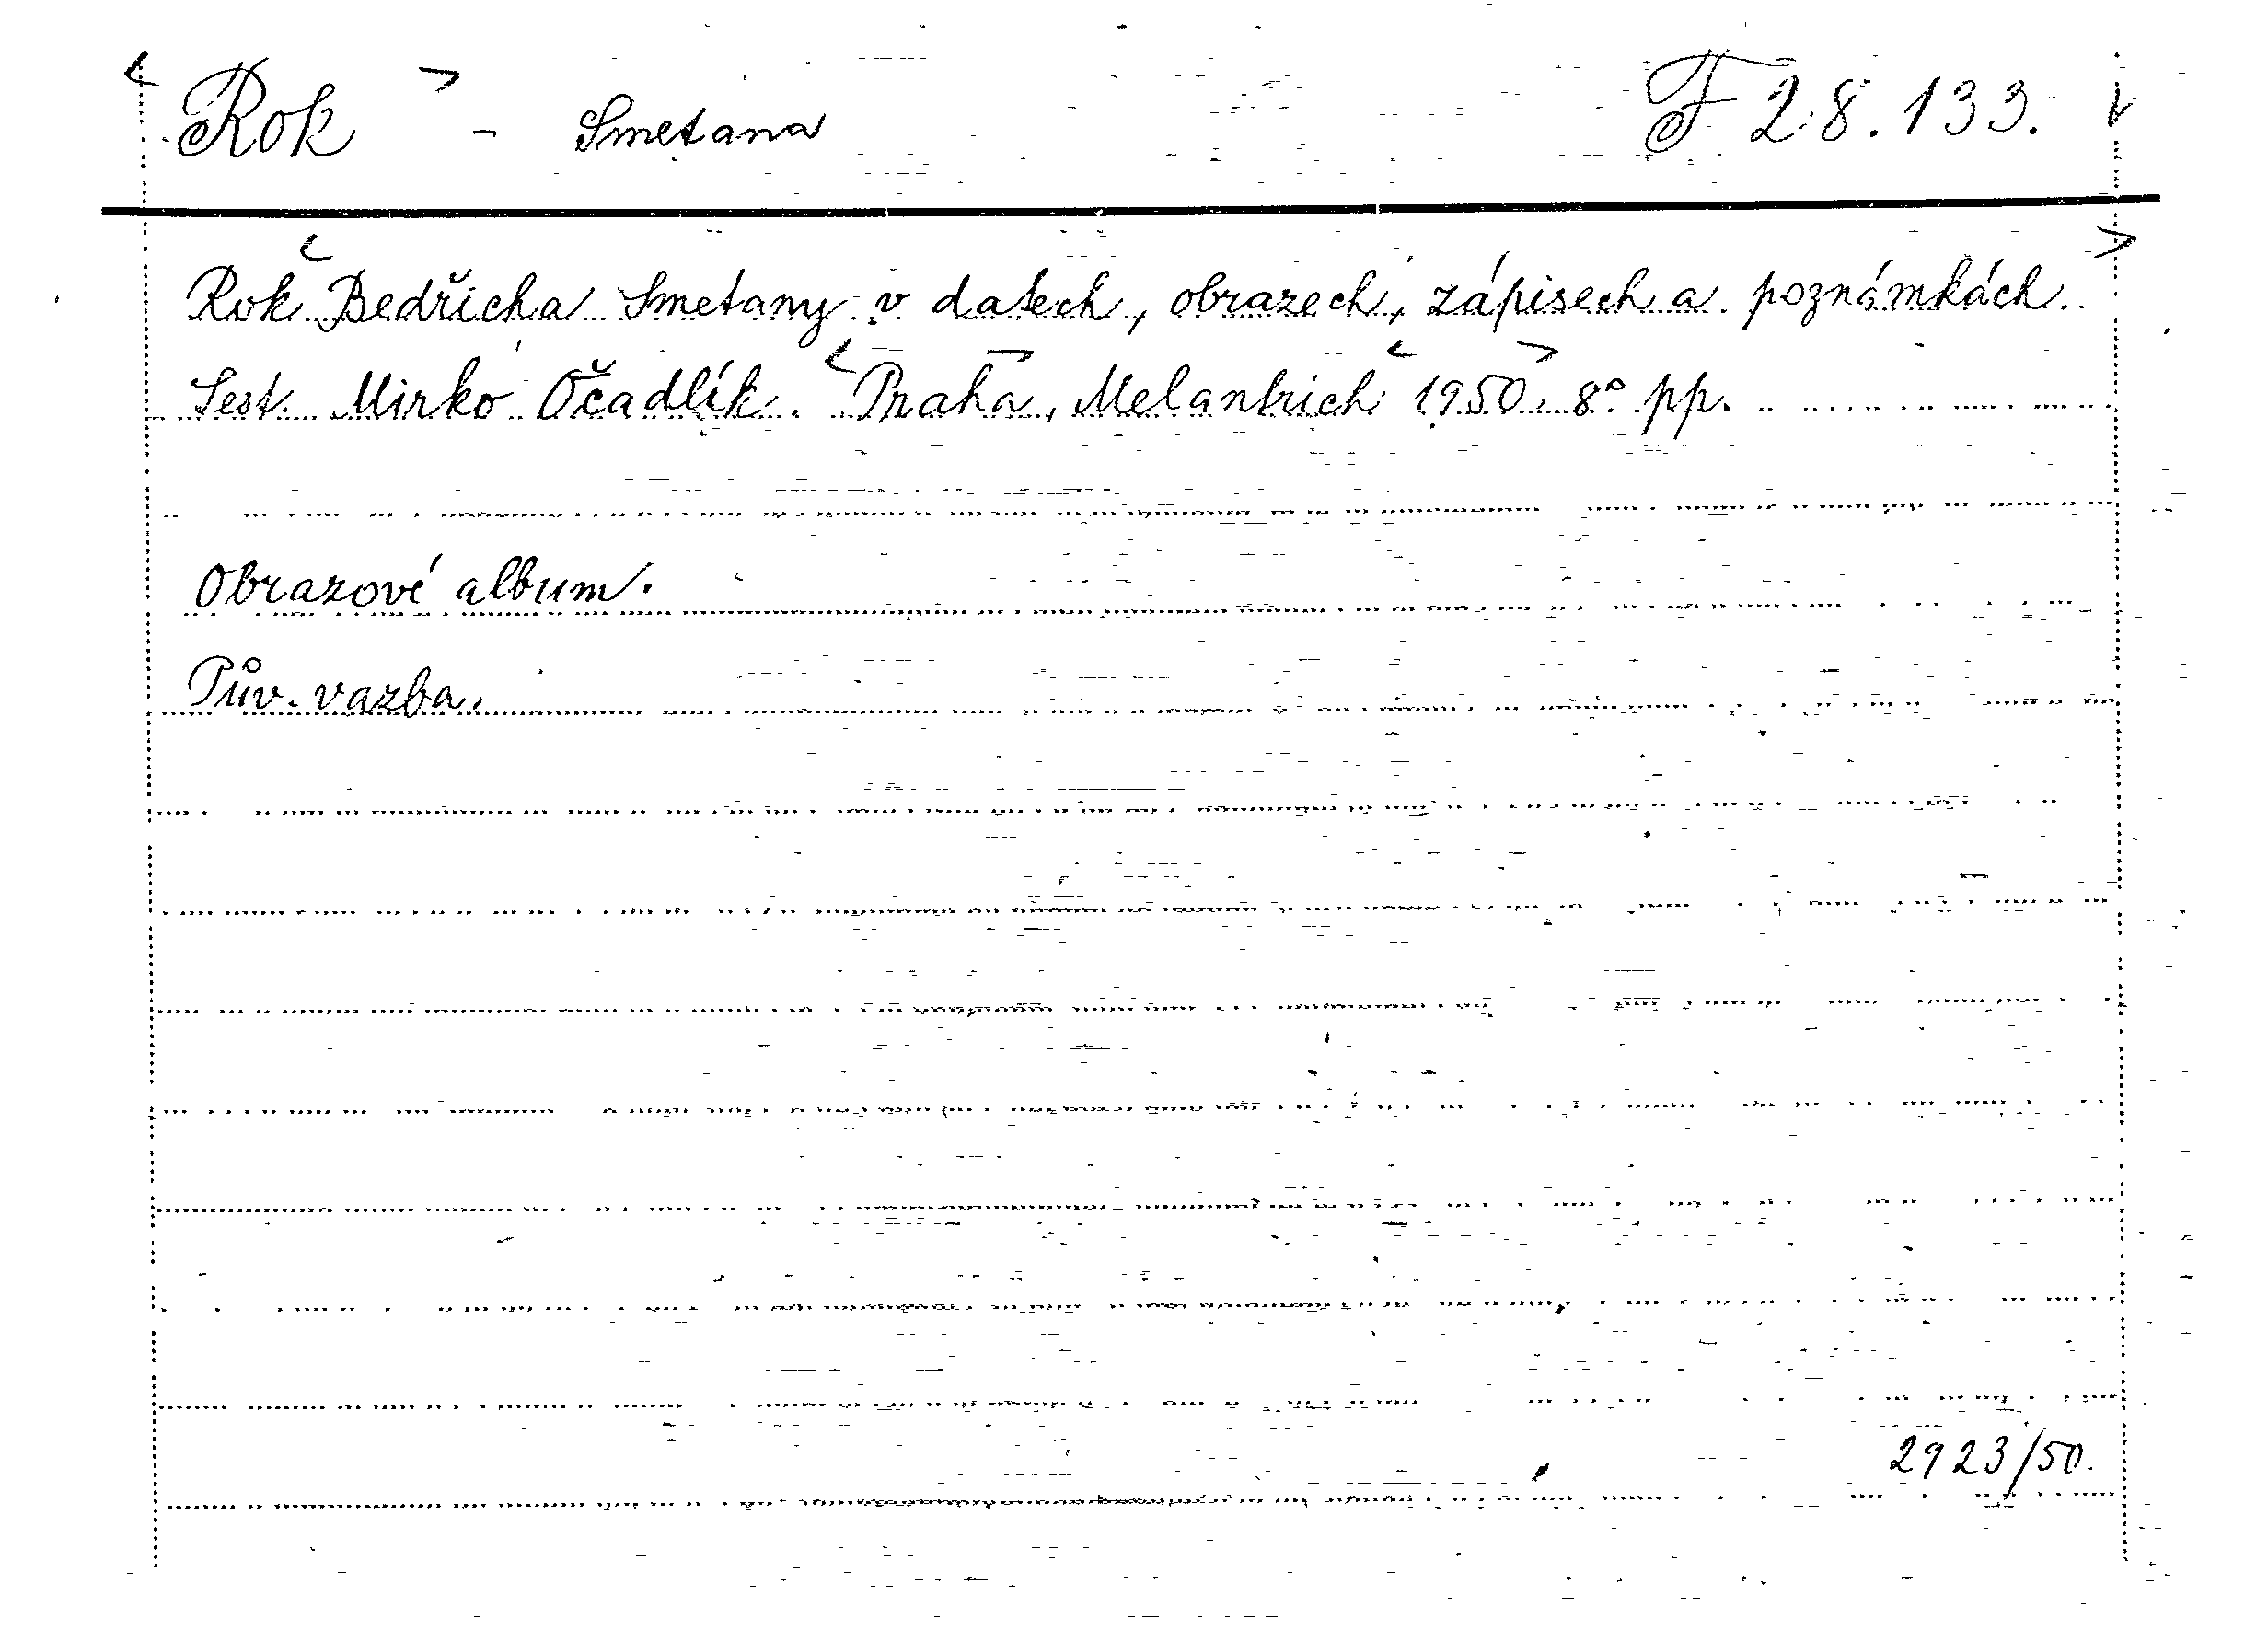 Rok - Smetana F 28.133.
Rok Bedřicha Smetany v datech, obrazech, zápisech a poznámkách.
Sest. Mirko Očadlík. Praha, Melantrich 1950. 8° pp.
Obrazové album.
Pův. vazba.
2923/50.